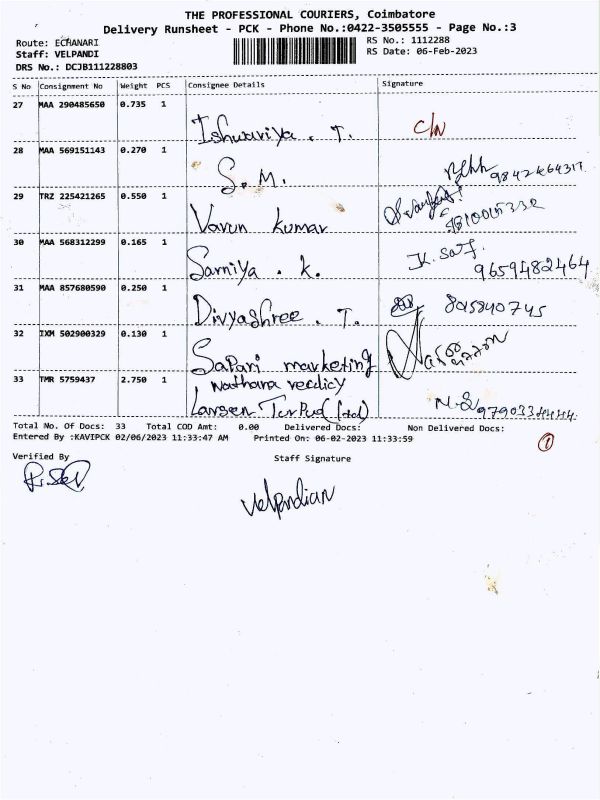 THE PROFESSIONAL COURIERS, Coimbatore
Delivery Runsheet - PCK - Phone No.:0422-3505555 - Page No.:3
Route: ECHANARI
RS No.: 1112288
Staff: VELPANDI
RS Date: 06-Feb-2023
DRS No.: DCJB111228803
S No Consignment No Weight PCS Consignee Details Signature
27 MAA 290485650 0.735 1
Ishwariya . T. C/N
28 MAA 569151143 0.270 1
S. M.
29 TRZ 225421265 0.550 1
Varun Kumar
30 MAA 568312299 0.165 1 K. Sat
Sarniya . K. 9659482464
31 MAA 857680590 0.250 1
Divyashree . T.
32 IXM 502900329 0.130 1
Sapari marketing
33 TMR 5759437 2.750 1
Larsen
Total No. Of Docs: 33 Total COD Amt: 0.00 Delivered Docs: Non Delivered Docs:
Entered By :KAVIPCK 02/06/2023 11:33:47 AM Printed On: 06-02-2023 11:33:59
1
Verified By Staff Signature
Velpandian